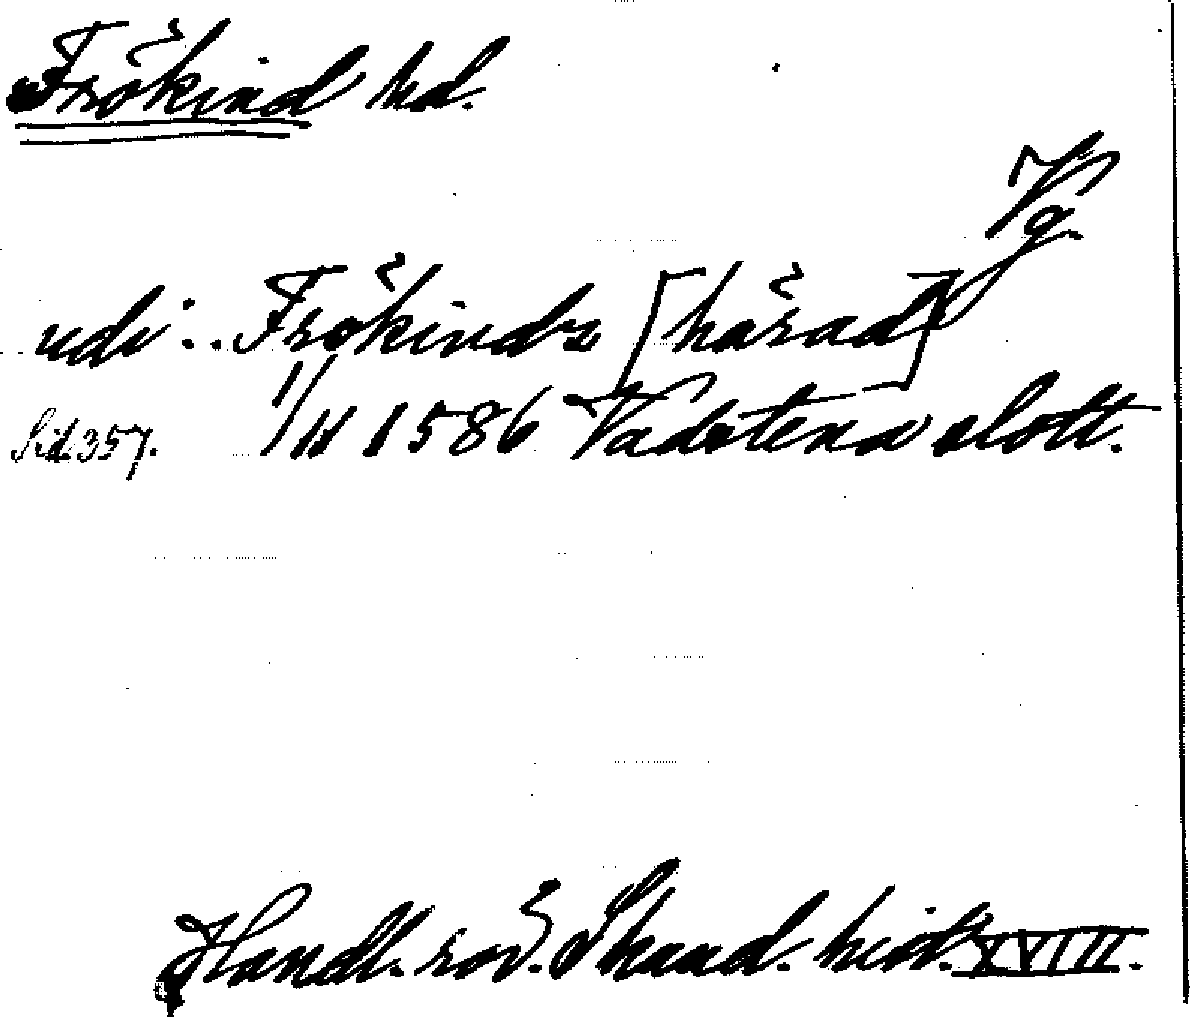 Frökind hd.
Vg.
udi .. Frökindz [härad]
Sid 357. 1/11 1586 Vadstena slott.
Handl. rör. Skand. hist. XVIII.